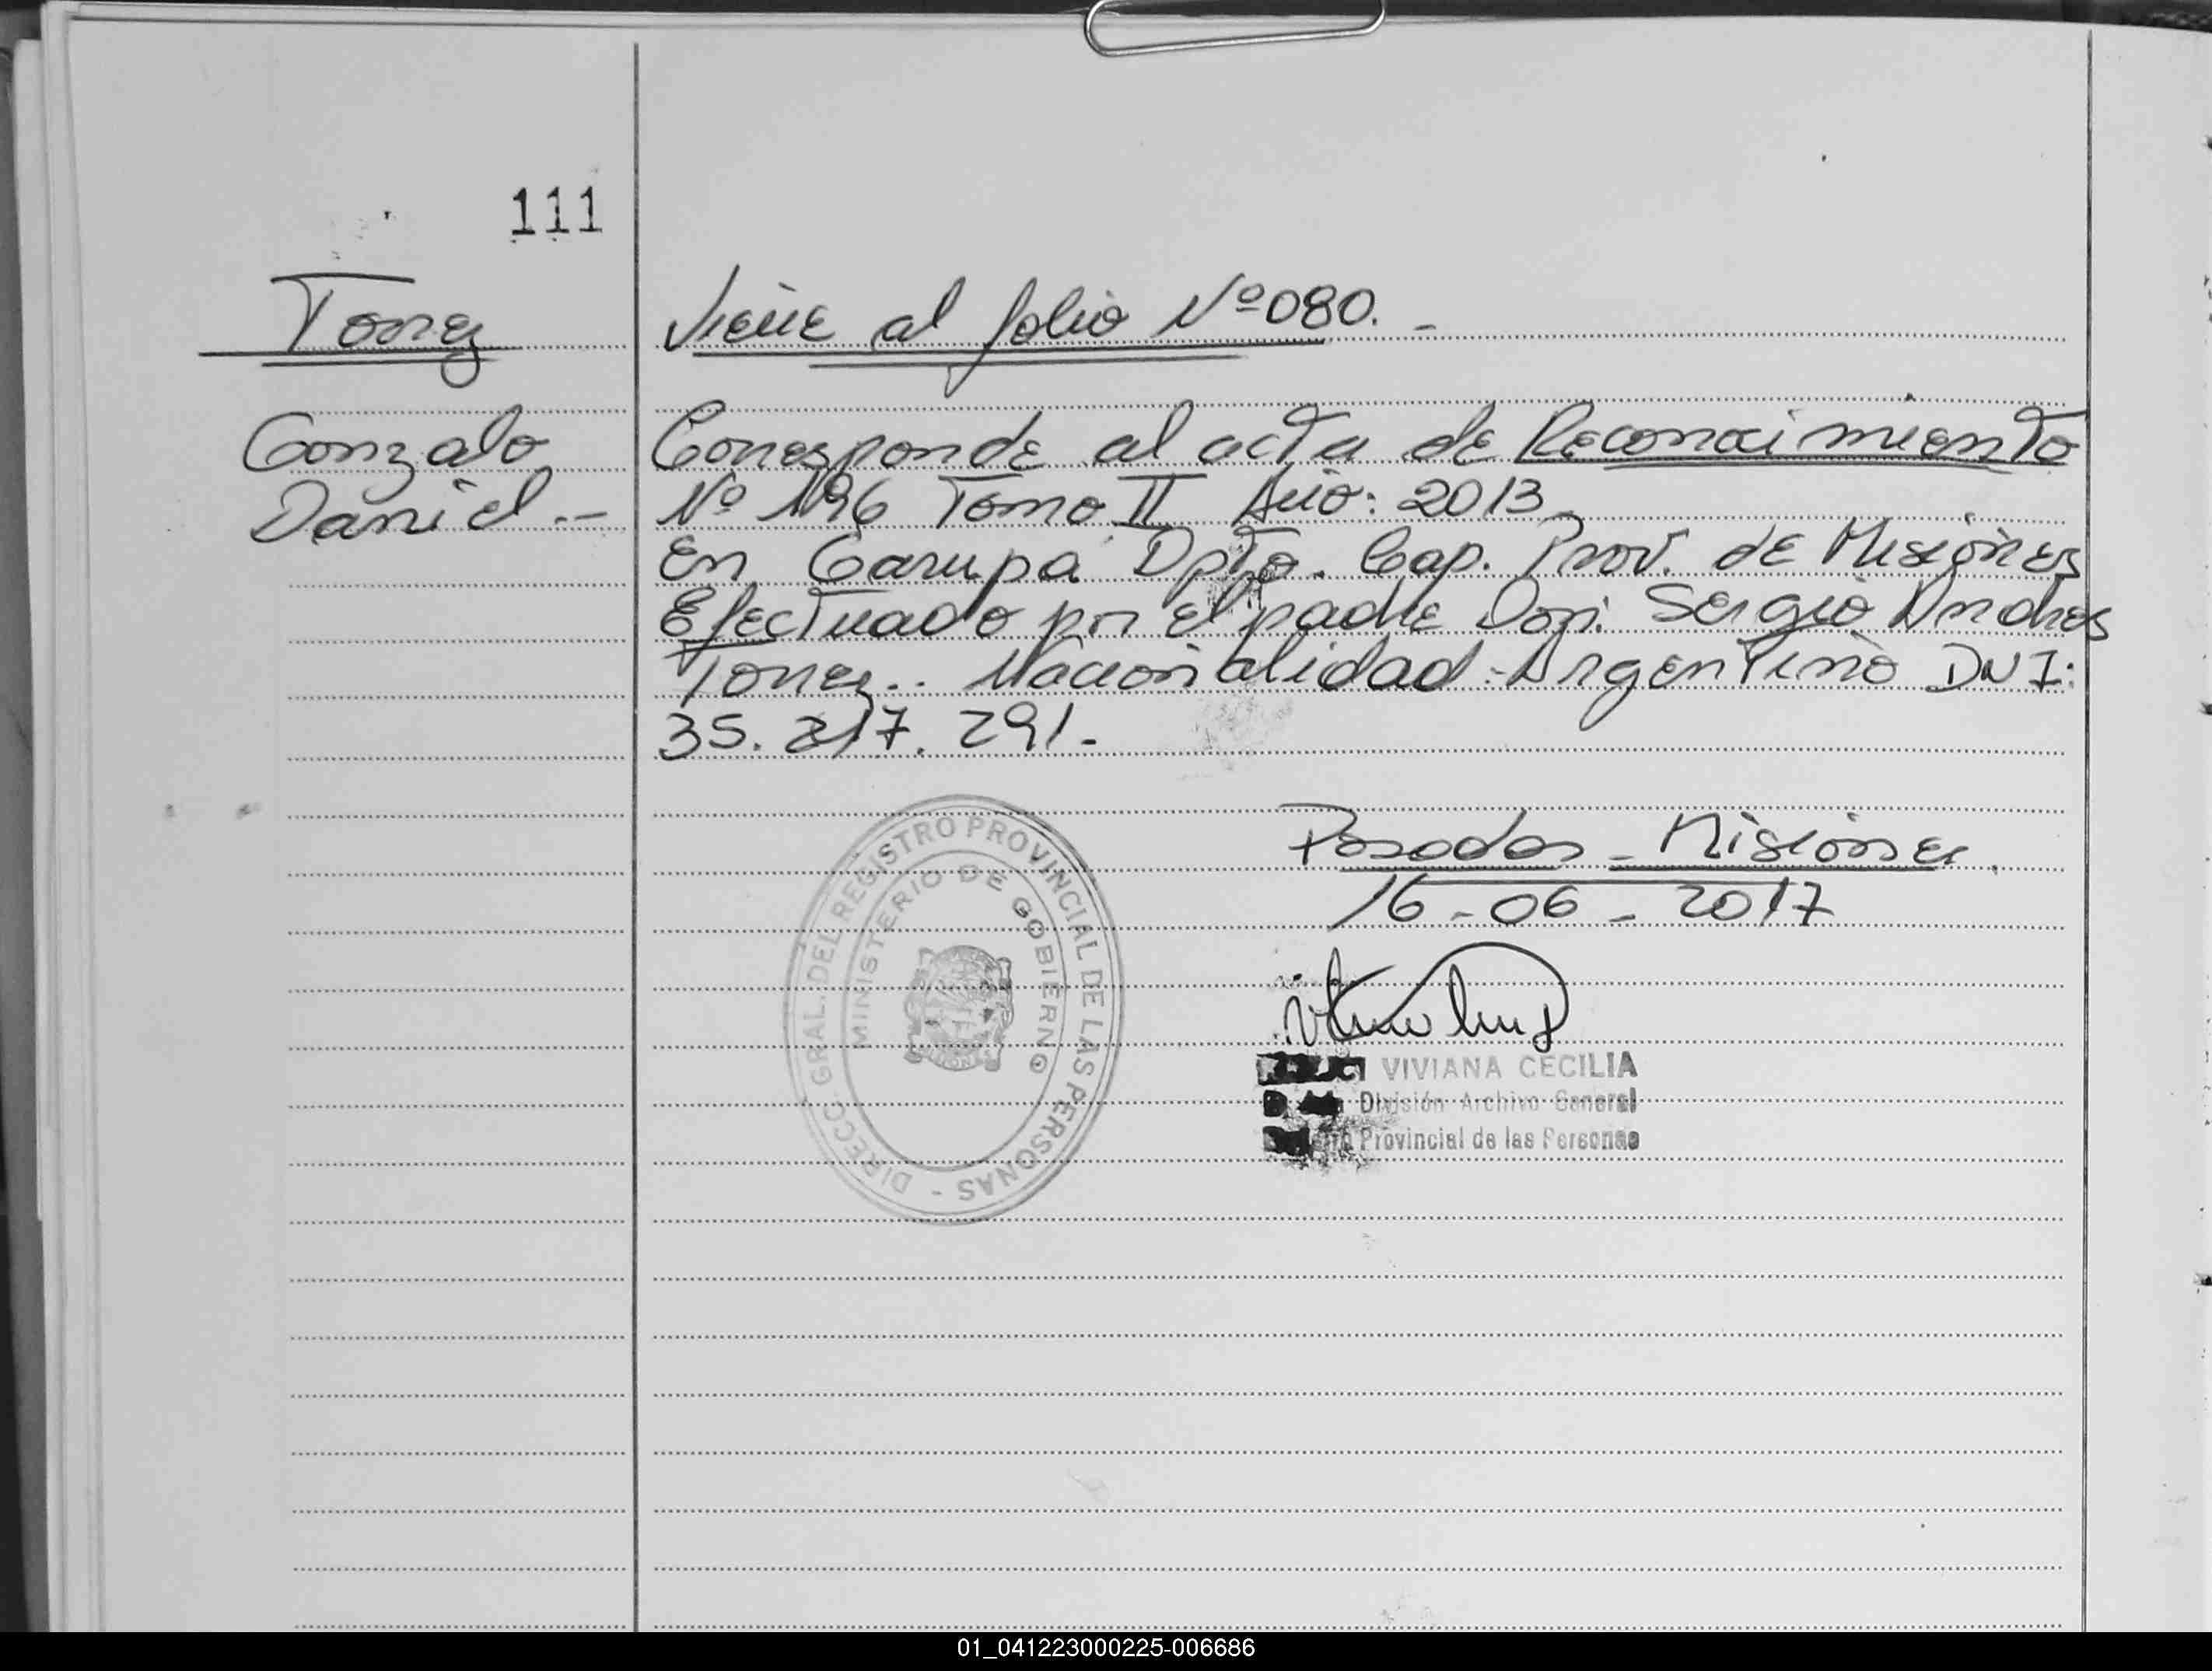 111
Torrez
Viene al folio Nº 080. -
Gonzalo
Daniel. -
Corresponde al acta de Reconocimiento
Nº 196 Tomo II Año: 2013
En Garupa Dpto. Cap. Prov. de Misiones
Efectuado por el padre Don: Sergio Andres
Torrez.. Nacionalidad: Argentino DNI:
35. 217. 291. -
Posadas - Misiones
16 - 06 - 2017
DIRECC. GRAL. DEL REGISTRO PROVINCIAL DE LAS PERSONAS -
MINISTERIO DE GOBIERNO
VIVIANA CECILIA
División Archivo General
Provincial de las Personas
01_041223000225-006686